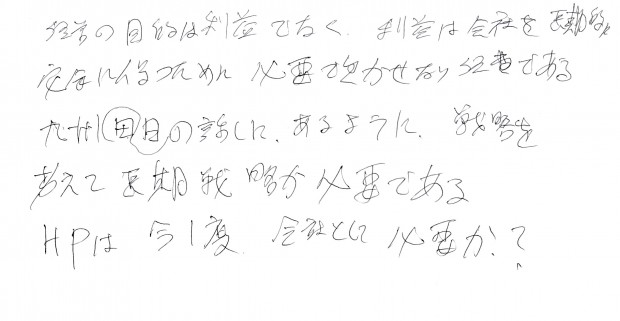 経営の目的は利益でなく、利益は会社を長期的
安全に保つために必要で欠かせない経費である
九州田の話しに、あるように、戦略を
考えて長期戦略が必要である
HPは今1度、会社として必要か?